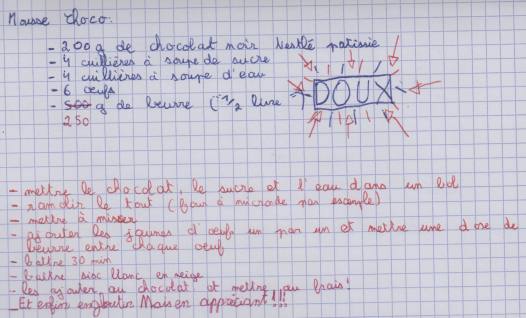 Mousse choco:
- 200g de chocolat noir Nestlé patissie
- 4 cuillières à soupe de sucre
- 4 cuillières à soupe d'eau
- 6 œufs
- 500 g de beurre (1/2 livre
250
DOUX
- mettre le chocolat, le sucre et l'eau dans un bol
- ramolir le tout (four à microde par exemple)
- mettre à mixer
- ajouter les jaunes d'œufs un par un et mettre une dose de
beurre entre chaque œuf
- battre 30 min
- battre six blanc en neige
- les ajouter au chocolat et mettre au frais!
- Et enfin engloutir Mais en appréciant!!!!